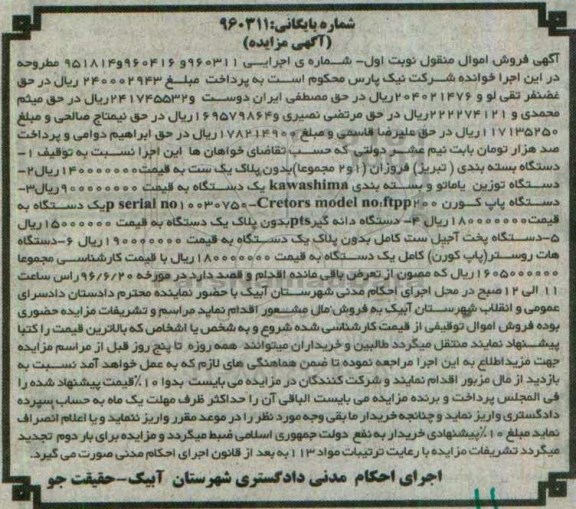 شماره بایگانی:۹۶۰۳۱۱
(آگهی مزایده)
آگهی فروش اموال منقول نوبت اول- شماره ی اجرایی ۹۶۰۳۱۱و ۹۶۰۴۱۶و۹۵۱۸۱۴ مطروحه
در این اجرا خوانده شرکت نیک پارس محکوم است به پرداخت مبلغ ۲۴۰۰۰۲۹۴۳ ریال در حق
غضنفر تقی لو و ۲۰۴۰۲۱۴۷۶ریال در حق مصطفی ایران دوست و۲۴۱۷۴۵۵۳۲ریال در حق میثم
محمدی و ۲۲۲۲۷۴۱۲۱ریال در حق مرتضی نصیری و۱۶۹۵۷۹۸۶۴ریال در حق نیمتاج صالحی و مبلغ
۱۱۷۱۳۵۲۵۰ریال در حق علیرضا قاسمی و مبلغ ۱۷۸۲۱۴۹۰۰ریال در حق ابراهیم دوامی و پرداخت
صد هزار تومان بابت نیم عشر دولتی که حسب تقاضای خواهان ها این اجرا نسبت به توقیف ۱-
دستگاه بسته بندی ( تبریز) فروزان (۱و۲ مجموعا)بدون پلاک یک ست به قیمت۱۴۰۰۰۰۰۰۰ریال۲-
دستگاه توزین یاماتو و بسته بندی kawashima یک دستگاه به قیمت ۹۰۰۰۰۰۰۰۰ریال۳-
دستگاه پاپ کورن Cretors model no:ftpp۲۰۰-p serial no۱۰۰۳۰۷۵۰یک دستگاه به
قیمت۱۸۰۰۰۰۰۰۰ریال ۴-دستگاه دانه گیرptsبدون پلاک یک دستگاه به قیمت ۱۵۰۰۰۰۰۰ریال
۵-دستگاه پخت آجیل ست کامل بدون پلاک یک دستگاه به قیمت ۱۹۰۰۰۰۰۰۰ریال ۶-دستگاه
هات روستر(پاپ کورن) کامل یک دستگاه به قیمت ۱۸۰۰۰۰۰۰۰ریال با قیمت کارشناسی مجموعا
۱۶۰۵۰۰۰۰۰۰ریال که مصون از تعرض باقی مانده اقدام و قصد دارد در مورخه ۹۶/۶/۲۰راس ساعت
۱۱ الی ۱۲صبح در محل اجرای احکام مدنی شهرستان آبیک با حضور نماینده محترم دادستان دادسرای
عمومی و انقلاب شهرستان آبیک به فروش مال مشعور اقدام نماید مراسم و تشریفات مزایده حضوری
بوده فروش اموال توقیفی از قیمت کارشناسی شده شروع و به شخص یا اشخاص که بالاترین قیمت را کتبا
پیشنهاد نمایند منتقل میگردد طالبین و خریداران میتوانند همه روزه تا پنج روز قبل از مراسم مزایده
جهت مزیداطلاع به این اجرا مراجعه نموده تا ضمن هماهنگی های لازم که به عمل خواهد آمد نسبت به
بازدید از مال مزبور اقدام نمایند و شرکت کنندگان در مزایده می بایست بدوا ۱۰٪قیمت پیشنهاد شده را
فی المجلس پرداخت و برنده مزایده می بایست الباقی آن را حداکثر ظرف مهلت یک ماه به حساب سپرده
دادگستری واریز نماید و چنانچه خریدار ما بقی وجه مورد نظر را در موعد مقرر واریز ننماید و یا اعلام انصراف
نماید مبلغ ۱۰٪پیشنهادی خریدار به نفع دولت جمهوری اسلامی ضبط میگردد و مزایده برای بار دوم تجدید
میگردد تشریفات مزایده با رعایت ترتیبات مواد ۱۱۳به بعد از قانون اجرای احکام مدنی صورت می گیرد.
اجرای احکام مدنی دادگستری شهرستان آبیک-حقیقت جو